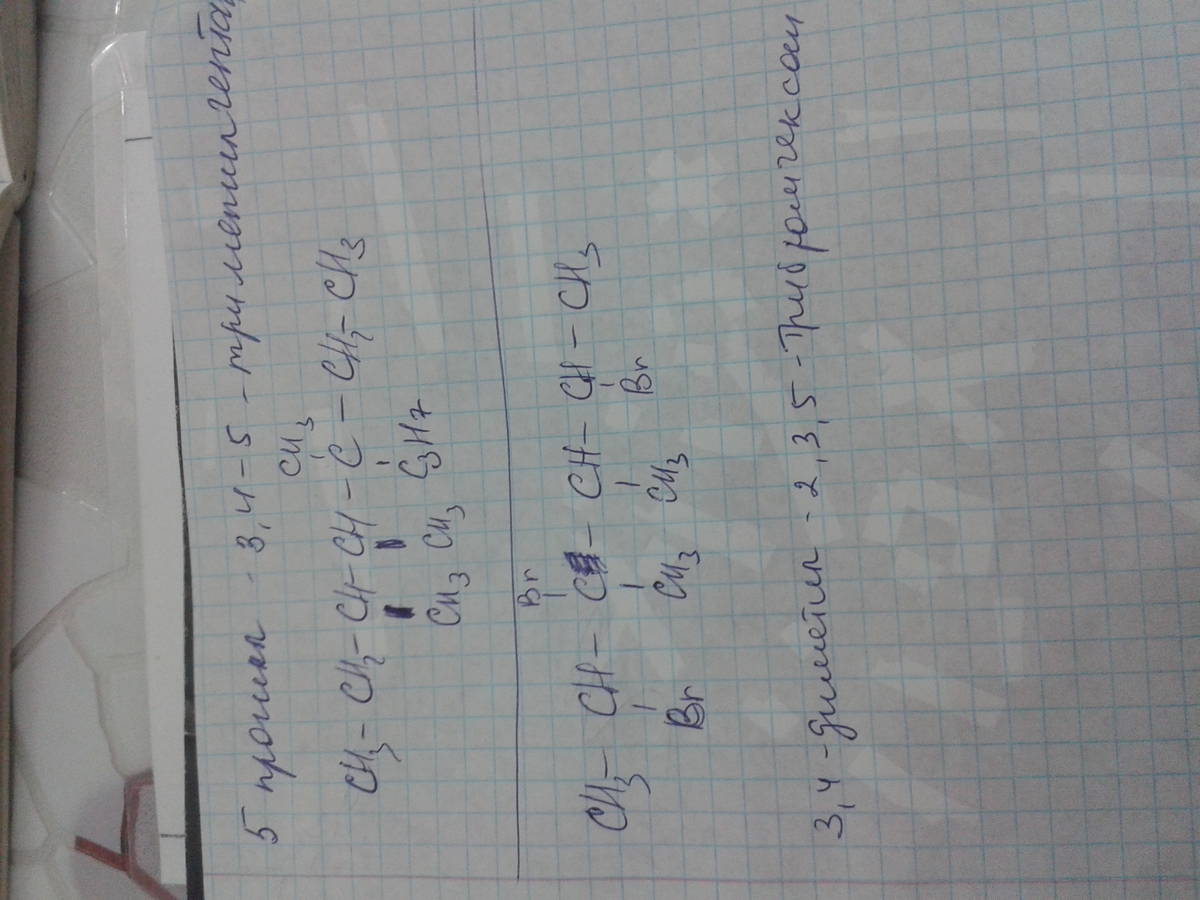 5 пропил - 3,4-5 - триметилгептан
CH3
CH3 - CH2 - CH - CH - C - CH2 - CH3
CH3 CH3 C3H7
Br
CH3 - CH - C - CH - CH - CH3
Br CH3 CH3 Br
3,4 - диметил - 2,3,5 - Трибромгексан